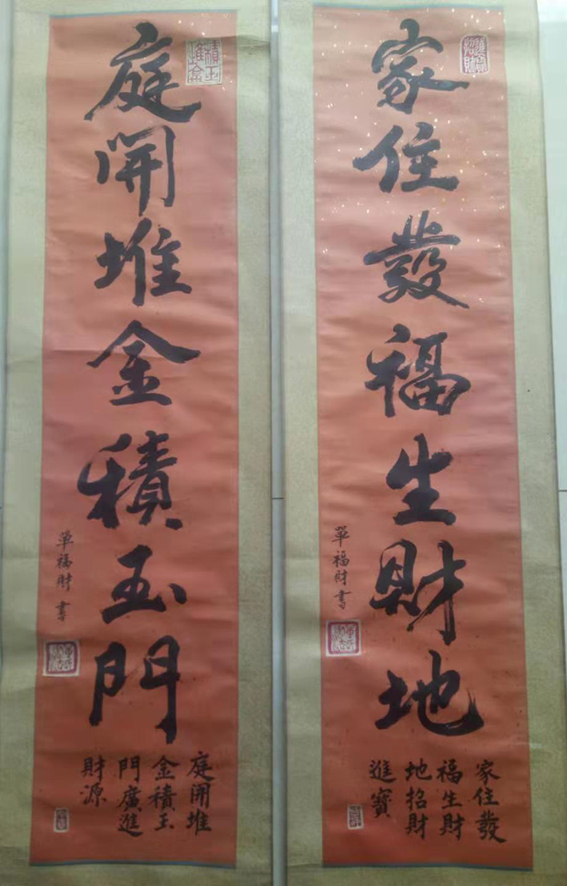 家住發福生財地
單福財書
家住發
福生財
地招財
進寶
庭開堆金積玉門
單福財書
庭開堆
金積玉
門廣進
財源
積玉
堆金